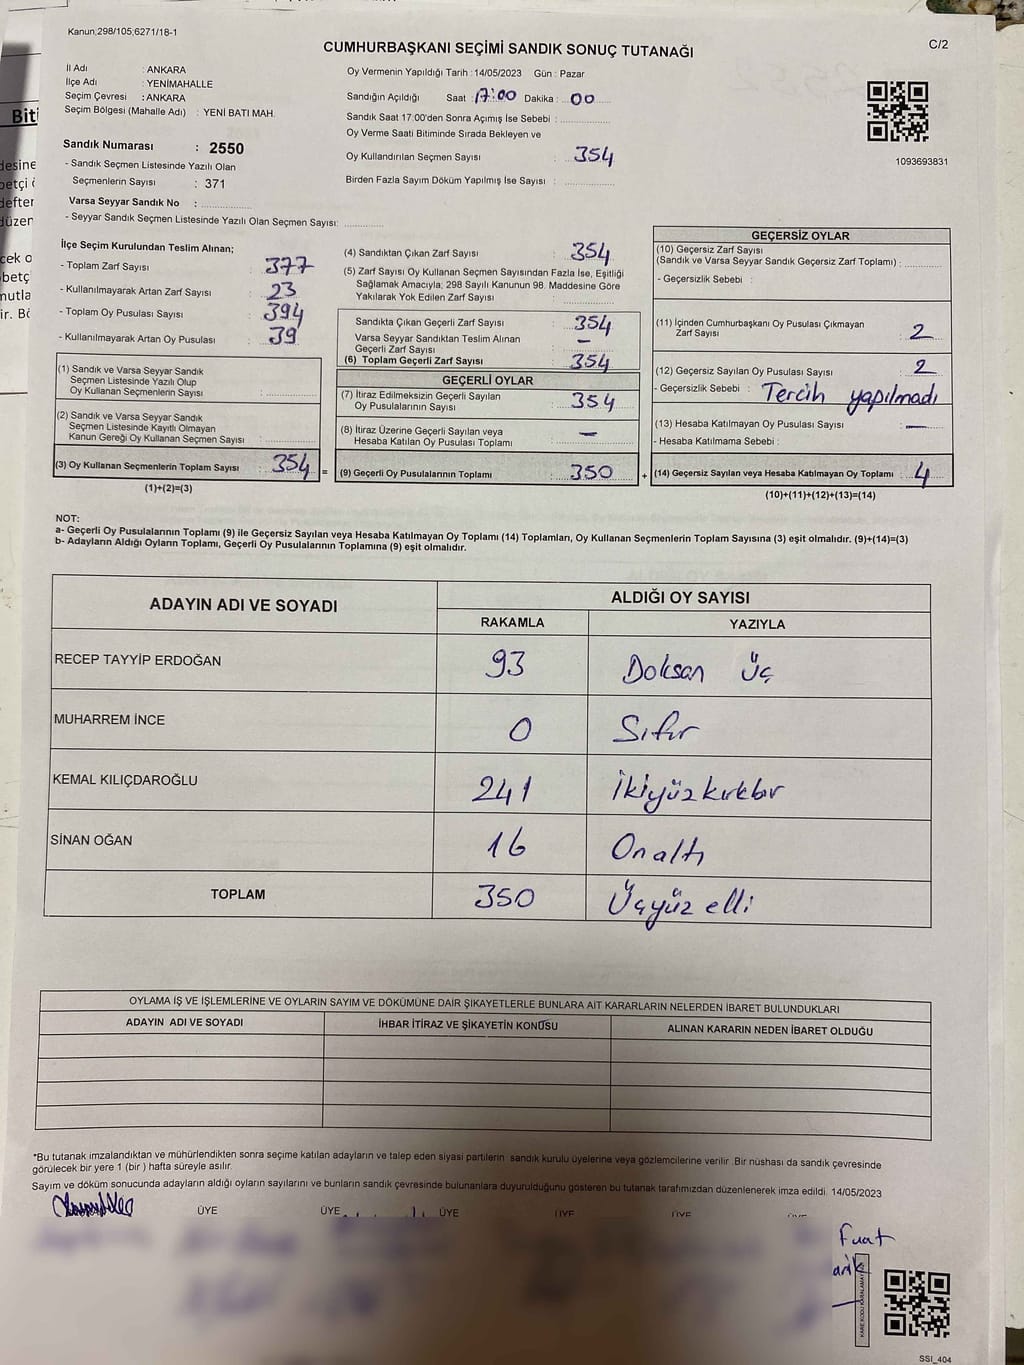 Kanun,298/105;6271/18-1
CUMHURBAŞKANI SEÇİMİ SANDIK SONUÇ TUTANAĞI
C/2
İl Adı : ANKARA
İlçe Adı : YENİMAHALLE
Seçim Çevresi : ANKARA
Seçim Bölgesi (Mahalle Adı) : YENİ BATI MAH.
Sandık Numarası : 2550
- Sandık Seçmen Listesinde Yazılı Olan
Seçmenlerin Sayısı : 371
Varsa Seyyar Sandık No :
- Seyyar Sandık Seçmen Listesinde Yazılı Olan Seçmen Sayısı:
Oy Vermenin Yapıldığı Tarih : 14/05/2023 Gün : Pazar
Sandığın Açıldığı Saat : 17:00 Dakika : 00
Sandık Saat 17:00'den Sonra Açımış İse Sebebi :
Oy Verme Saati Bitiminde Sırada Bekleyen ve
Oy Kullandırılan Seçmen Sayısı : 354
Birden Fazla Sayım Döküm Yapılmış İse Sayısı :
1093693831
Biti
desine
betçi
defter
düzen
cek o
betç
mutla
ir. Bö
İlçe Seçim Kurulundan Teslim Alınan;
- Toplam Zarf Sayısı : 377
- Kullanılmayarak Artan Zarf Sayısı : 23
- Toplam Oy Pusulası Sayısı : 394
- Kullanılmayarak Artan Oy Pusulası : 39
(1) Sandık ve Varsa Seyyar Sandık
Seçmen Listesinde Yazılı Olup
Oy Kullanan Seçmenlerin Sayısı :
(2) Sandık ve Varsa Seyyar Sandık
Seçmen Listesinde Kayıtlı Olmayan
Kanun Gereği Oy Kullanan Seçmen Sayısı :
(3) Oy Kullanan Seçmenlerin Toplam Sayısı : 354 =
(1)+(2)=(3)
(4) Sandıktan Çıkan Zarf Sayısı : 354
(5) Zarf Sayısı Oy Kullanan Seçmen Sayısından Fazla İse, Eşitliği
Sağlamak Amacıyla; 298 Sayılı Kanunun 98. Maddesine Göre
Yakılarak Yok Edilen Zarf Sayısı :
Sandıkta Çıkan Geçerli Zarf Sayısı : 354
Varsa Seyyar Sandıktan Teslim Alınan
Geçerli Zarf Sayısı : —
(6) Toplam Geçerli Zarf Sayısı : 354
GEÇERLİ OYLAR
(7) İtiraz Edilmeksizin Geçerli Sayılan
Oy Pusulalarının Sayısı : 354
(8) İtiraz Üzerine Geçerli Sayılan veya
Hesaba Katılan Oy Pusulası Toplamı : —
(9) Geçerli Oy Pusulalarının Toplamı : 350 +
GEÇERSİZ OYLAR
(10) Geçersiz Zarf Sayısı
(Sandık ve Varsa Seyyar Sandık Geçersiz Zarf Toplamı) :
- Geçersizlik Sebebi :
(11) İçinden Cumhurbaşkanı Oy Pusulası Çıkmayan
Zarf Sayısı : 2
(12) Geçersiz Sayılan Oy Pusulası Sayısı : 2
- Geçersizlik Sebebi : Tercih yapılmadı
(13) Hesaba Katılmayan Oy Pusulası Sayısı : —
- Hesaba Katılmama Sebebi :
(14) Geçersiz Sayılan veya Hesaba Katılmayan Oy Toplamı : 4
(10)+(11)+(12)+(13)=(14)
NOT:
a- Geçerli Oy Pusulalarının Toplamı (9) ile Geçersiz Sayılan veya Hesaba Katılmayan Oy Toplamı (14) Toplamları, Oy Kullanan Seçmenlerin Toplam Sayısına (3) eşit olmalıdır. (9)+(14)=(3)
b- Adayların Aldığı Oyların Toplamı, Geçerli Oy Pusulalarının Toplamına (9) eşit olmalıdır.
ADAYIN ADI VE SOYADI
ALDIĞI OY SAYISI
RAKAMLA YAZIYLA
RECEP TAYYİP ERDOĞAN 93 Doksan Üç
MUHARREM İNCE 0 Sıfır
KEMAL KILIÇDAROĞLU 241 İkiyüzkırkbir
SİNAN OĞAN 16 Onaltı
TOPLAM 350 Üçyüz elli
OYLAMA İŞ VE İŞLEMLERİNE VE OYLARIN SAYIM VE DÖKÜMÜNE DAİR ŞİKAYETLERLE BUNLARA AİT KARARLARIN NELERDEN İBARET BULUNDUKLARI
ADAYIN ADI VE SOYADI İHBAR İTİRAZ VE ŞİKAYETİN KONUSU ALINAN KARARIN NEDEN İBARET OLDUĞU
*Bu tutanak imzalandıktan ve mühürlendikten sonra seçime katılan adayların ve talep eden siyasi partilerin sandık kurulu üyelerine veya gözlemcilerine verilir. Bir nüshası da sandık çevresinde
görülecek bir yere 1 (bir ) hafta süreyle asılır.
Sayım ve döküm sonucunda adayların aldığı oyların sayılarını ve bunların sandık çevresinde bulunanlara duyurulduğunu gösteren bu tutanak tarafımızdan düzenlenerek imza edildi. 14/05/2023
ÜYE ÜYE ÜYE ÜYE ÜYE ÜYE
Fuat
KARE KODU KARALAMAYIN
SSI_404